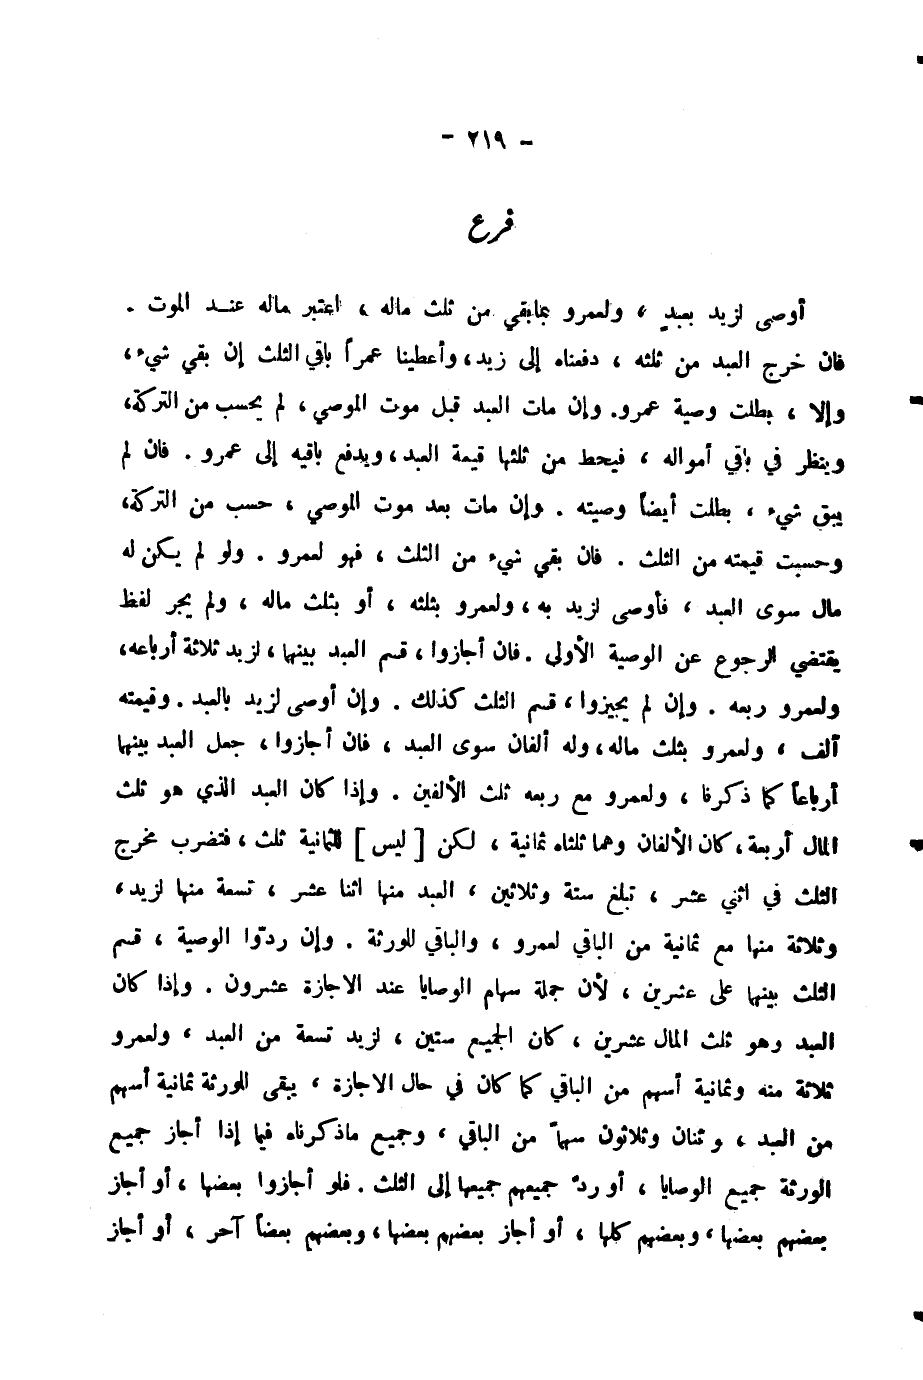 - ٢١٩ -
فرع
أوصى لزيد بعبدٍ ، ولعمرو بمابقي من ثلث ماله ، اعتبر ماله عنـد الموت .
فان خرج العبد من ثلثه ، دفعناه إلى زيد، وأعطينا عمراً باقي الثلث إن بقي شيء،
وإلا ، بطلت وصية عمرو. وإن مات العبد قبل موت الموصي، لم يحسب من التركة،
وينظر في باقي أمواله ، فيحط من ثلثها قيمة العبد، ويدفع باقيه إلى عمرو . فان لم
يبق شيء ، بطلت أيضاً وصيته . وإن مات بعد موت الموصي ، حسب من التركة،
وحسبت قيمته من الثلث . فان بقي شيء من الثلث ، فهو لعمرو . ولو لم يكن له
مال سوى العبد ، فأوصى لزيد به، ولعمرو بثلثه ، أو بثلث ماله ، ولم يجر لفظ
يقتضي الرجوع عن الوصية الأولى . فان أجازوا ، قسم العبد بينها ، لزيد ثلاثة أرباعه،
ولعمرو ربعه . وإن لم يجيزوا ، قسم الثلث كذلك . وإن أوصى لزيد بالعبد . وقيمته
ألف ، ولعمرو بثلث ماله، وله ألفان سوى العبد ، فان أجازوا ، جعل العبد بينها
أرباعاً كما ذكرنا ، ولعمرو مع ربعه ثلث الألفين . وإذا كان العبد الذي هو ثلث
المال أربعة، كان الألفان وهما ثلثاه ثمانية ، لكن [ ليس ] للثمانية ثلث ، فتضرب مخرج
الثلث في اثني عشر ، تبلغ ستة وثلاثين ، العبد منها اثنا عشر ، تسعة منها لزيد،
وثلاثة منها مع ثمانية من الباقي لعمرو ، والباقي للورثة . وإن ردّوا الوصية ، قسم
الثلث بينها على عشرين ، لأن جملة سهام الوصايا عند الاجازة عشرون . وإذا كان
العبد وهو ثلث المال عشرين ، كان الجميع ستين ، لزيد تسعة من العبد ، ولعمرو
ثلاثة منه وثمانية أسهم من الباقي كما كان في حال الاجازة ، يبقى للورثة ثمانية أسهم
من العبد ، وثنان وثلاثون سهماً من الباقي ، وجميع ماذكرناه فيما إذا أجاز جميع
الورثة جميع الوصايا ، أو ردّ جميعهم جميعها إلى الثلث . فلو أجازوا بعضها ، أو أجاز
بعضهم بعضها ، وبعضهم كلها ، أو أجاز بعضهم بعضها ، وبعضهم بعضاً آخر ، أو أجاز